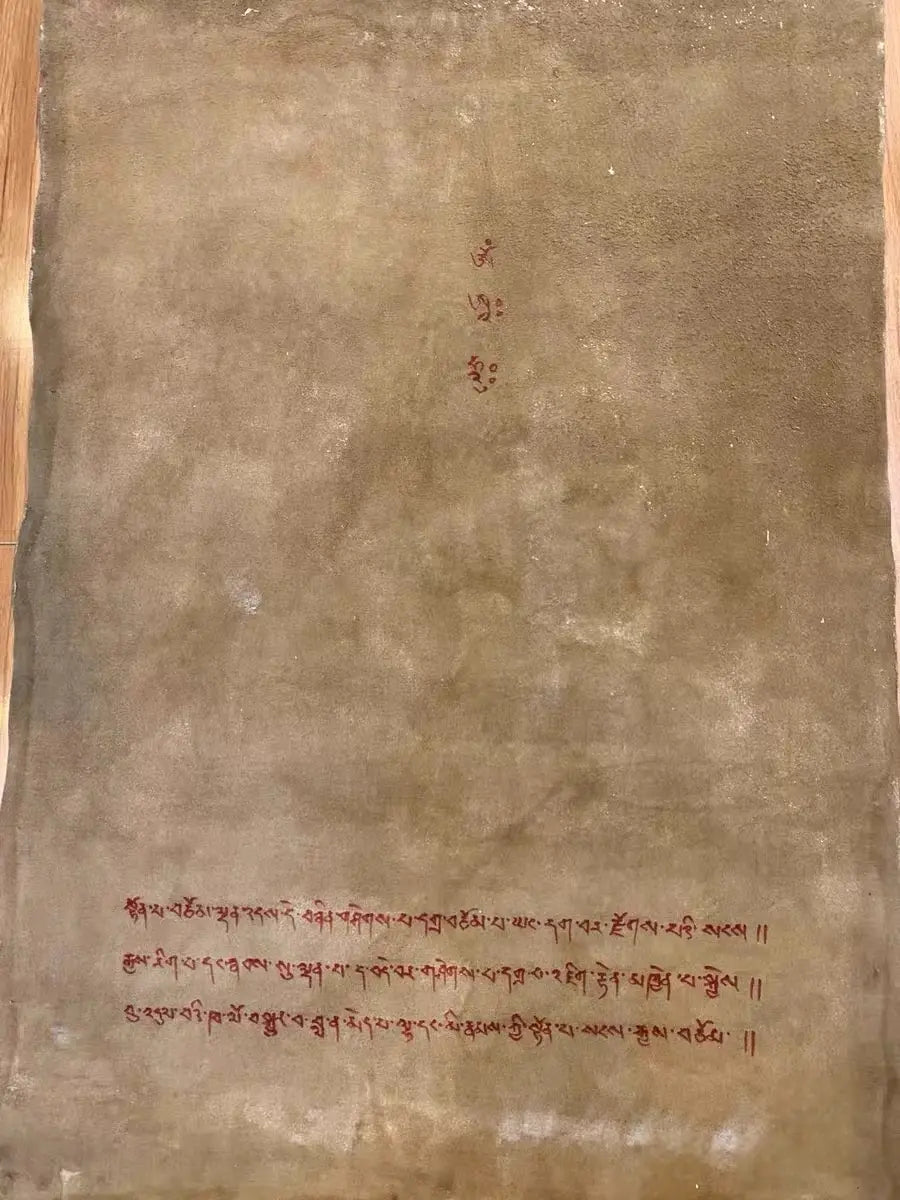 ཨོཾ
ཨཱཿ
ཧཱུྃ༔
སྟོན་པ་བཅོམ་ལྡན་འདས་དེ་བཞིན་གཤེགས་པ་དགྲ་བཅོམ་པ་ཡང་དག་པར་རྫོགས་པའི་སངས ༎
རྒྱས་རིག་པ་དང་ཞབས་སུ་ལྡན་པ་བདེ་བར་གཤེགས་པ་འཇིག་རྟེན་མཁྱེན་པ་སྐྱེས ༎
བུ་འདུལ་བའི་ཁ་ལོ་བསྒྱུར་བ་བླ་ན་མེད་པ་ལྷ་དང་མི་རྣམས་ཀྱི་སྟོན་པ་སངས་རྒྱས་བཅོམ་ ༎